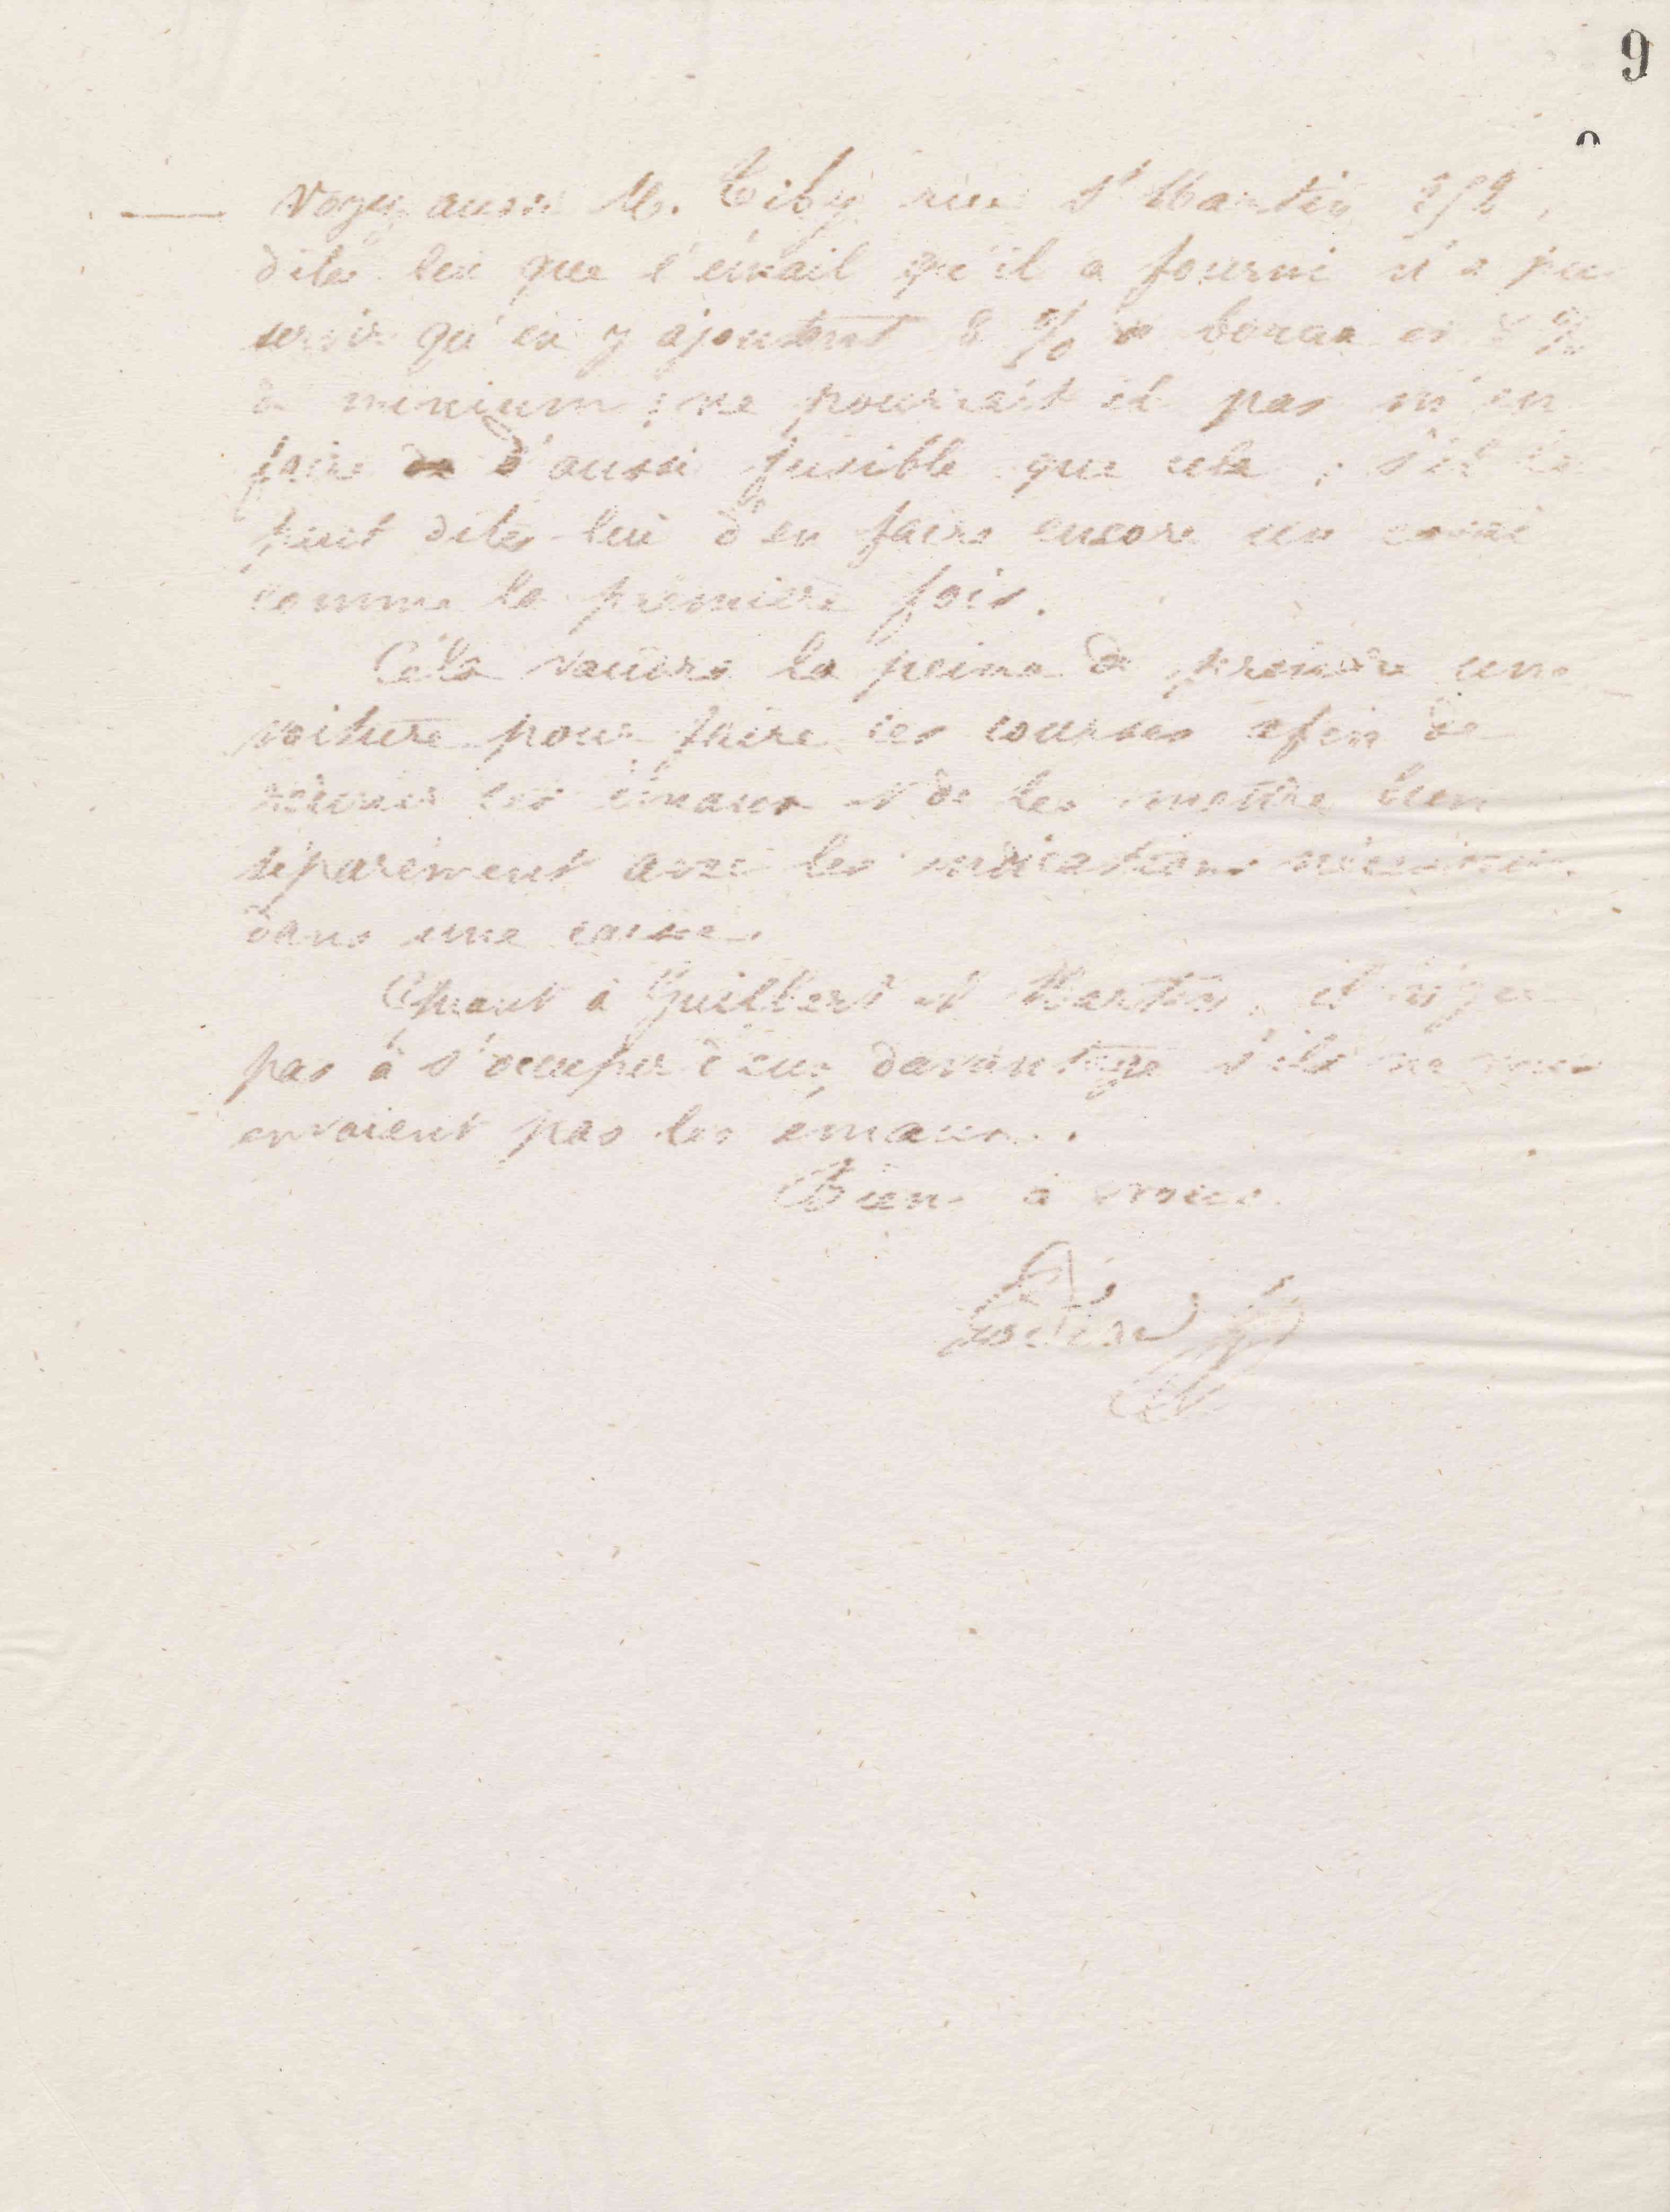 9
Voyez aussi M. Tiby rue St Martin 252,
dites lui que l'émail qu'il a fourni n'a pu
servir qu'en y ajoutant 8 % de borax et 8 %
de minium ; ne pourrait il pas m'en
faire de d'aussi fusible que cela ; s'il le
peut dites lui d'en faire encore un essai
comme la première fois.
Cela vaudra la peine de prendre une
voiture pour faire ces courses afin de
réunir ces émaux et de les mettre bien
séparément avec les indications nécessaires
dans une caisse.
Quant à Guilbert et Martin, il n'y a
pas à s'occuper d'eux davantage s'ils ne vous
envoient pas les émaux.
Bien à vous
Godin